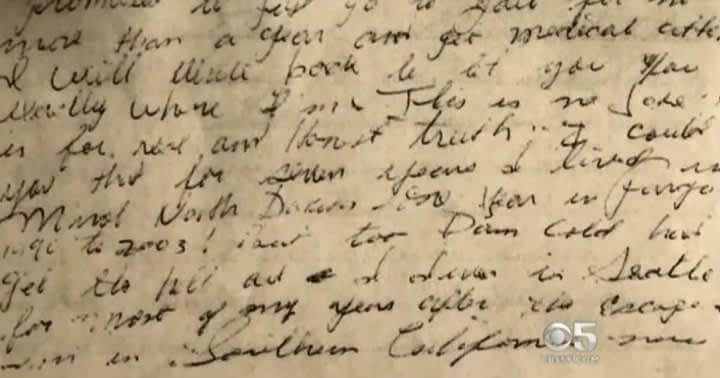 promised to jail for no
more than a year and get medical atte
I will write back to let you
exactly where I am This is no joke
is for real and Honest truth I could
you that for seven years I lived in
Minot North Dakota year in fargo
to 2003! but too Damn Cold had
get the hell out I lived in Seattle
for most of my years after the escape
in Southern California now
CBS 5